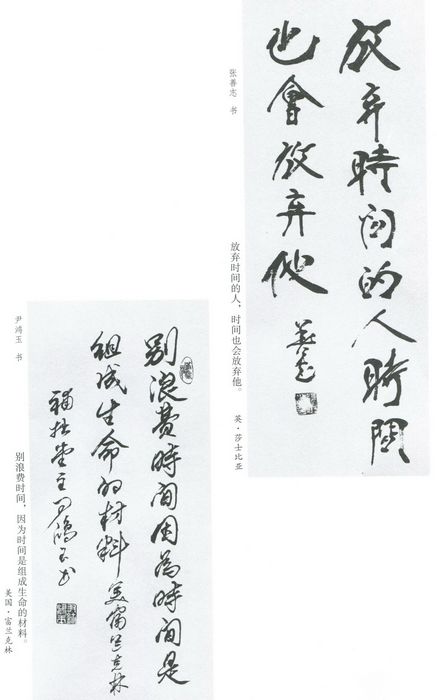 放弃時间的人時間
也會放弃他
善志
张善志 书
放弃时间的人，时间也会放弃他。
英·莎士比亚
别浪費時间因為時间是
组成生命的材料 美富兰克林
補拙堂主尹鴻玉书
尹鸿玉 书
别浪费时间，因为时间是组成生命的材料。
美国·富兰克林